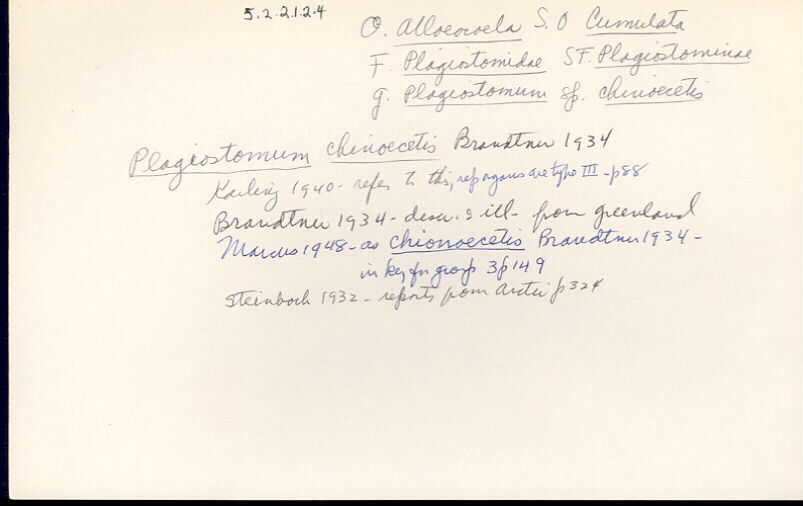 5.2.2.1.2.4
O. Alloeocoela S.O Cumulata
F. Plagiostomidae SF. Plagiostominae
g. Plagiostomum sp. chinoecetis
Plagiostomum chinoecetis Brandtner 1934
Karling 1940 - refers to this, rep organs are type III - p88
Brandtner 1934 - desc. & ill - from greenland
Marcus 1948 - as Chionoecetis Brandtner 1934 -
in key for group 3 p149
Steinboch 1932 - reports from Arctic p324